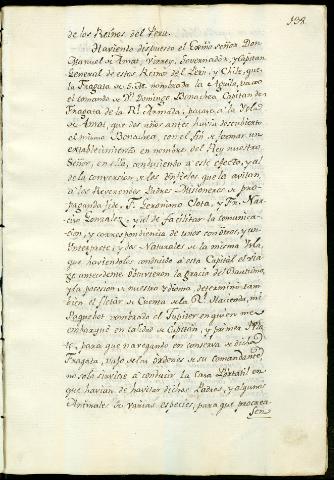 138.
de los Reinos del Peru.
Haviendo dispuesto el Exmo señor Don
Manuel de Amat, Virrey, Governador, y Capitan
General de estos Reinos del Perú, y Chile, que
la Fragata de S.M. nombrada la Aguila, vaxo
el comando de Dn Domingo Bonachea Capitan de
Fragata de la Rl Armada, pasase, a la Ysla
de Amat, que dos años antes havia descubierto
el mismo Bonachea, con el fin de formar un
establecimiento en nombre del Rey nuestro
Señor, en ella, conduciendo a este efecto, y al
de la conversion de los Ynfieles que la avitan,
a los Reverendos Padres Misioneros de pro-
paganda fide, F. Geronimo Clota, y Fr. Nar-
ciso Gonzalez, y el de facilitar la comunica-
cion, y correspondiencia de unos con otros, y un
Ynterprete; y dos Naturales de la misma Ysla,
que haviendolos conducido a esta Capital el via-
ge antecedente obtuvieron la gracia del Bautismo,
y la posesion de nuestro Ydioma, determinó tam-
bien el fletar de Cuenta de la Rl Hacienda, mi
Paquebot nombrado el Jupiter en quien me
embarqué en calidad de Capitan, y primer
para que navegando en conserva de dicha
Fragata, vajo de las ordenes de su comandante,
no solo sirviese a conducir la Casa Portatil en
que havian de havitar dichos Padres, y algunos
Animales de varias especies, para que procrea
sen